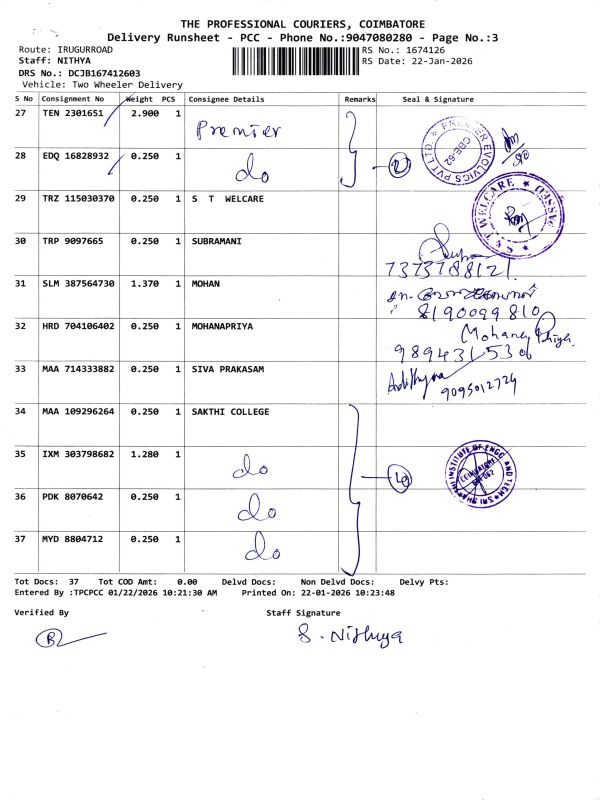 THE PROFESSIONAL COURIERS, COIMBATORE
Delivery Runsheet - PCC - Phone No.:9047080280 - Page No.:3
Route: IRUGURROAD
RS No.: 1674126
Staff: NITHYA
RS Date: 22-Jan-2026
DRS No.: DCJB167412603
Vehicle: Two Wheeler Delivery
S No Consignment No Weight PCS Consignee Details Remarks Seal & Signature
27 TEN 2301651 2.900 1 Premier
PREMIER EVOLVICS PVT LTD. ★ CBE-62
28 EDQ 16828932 0.250 1 do 2
29 TRZ 115030370 0.250 1 S T WELCARE
S & T WELCARE ★
30 TRP 9097665 0.250 1 SUBRAMANI
7373788121
31 SLM 387564730 1.370 1 MOHAN
8190099810
32 HRD 704106402 0.250 1 MOHANAPRIYA
Mohana Priya
9894315306
33 MAA 714333882 0.250 1 SIVA PRAKASAM
9095012724
34 MAA 109296264 0.250 1 SAKTHI COLLEGE
35 IXM 303798682 1.280 1 do
SRI SHAKTHI INSTITUTE OF ENGG AND TECH ★ COIMBATORE
36 PDK 8070642 0.250 1 do
37 MYD 8804712 0.250 1 do
Tot Docs: 37 Tot COD Amt: 0.00 Delvd Docs: Non Delvd Docs: Delvy Pts:
Entered By :TPCPCC 01/22/2026 10:21:30 AM Printed On: 22-01-2026 10:23:48
Verified By Staff Signature
S. Nithya